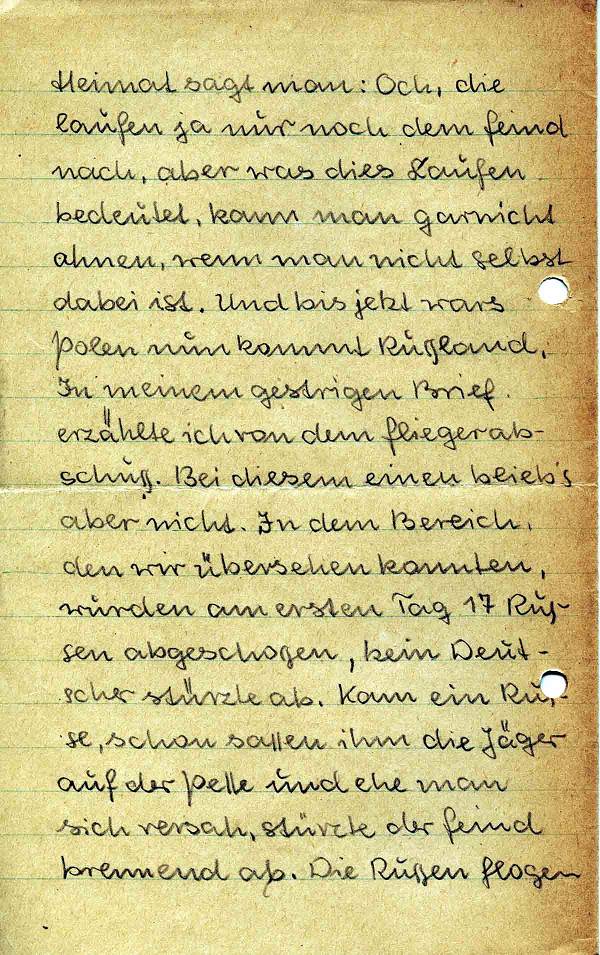 Heimat sagt man: Och, die
laufen ja nur noch dem Feind
nach, aber was dies Laufen
bedeutet, kann man garnicht
ahnen, wenn man nicht selbst
dabei ist. Und bis jetzt wars
Polen nun kommt Rußland.
In meinem gestrigen Brief
erzählte ich von dem Fliegerab-
schuß. Bei diesem einen blieb's
aber nicht. In dem Bereich,
den wir übersehen konnten,
wurden am ersten Tag 17 Rus-
sen abgeschoßen, kein Deut-
scher stürzte ab. Kam ein Rus-
se, schon sassen ihm die Jäger
auf der Pelle und ehe man
sich versah, stürzte der Feind
brennend ab. Die Rußen flogen